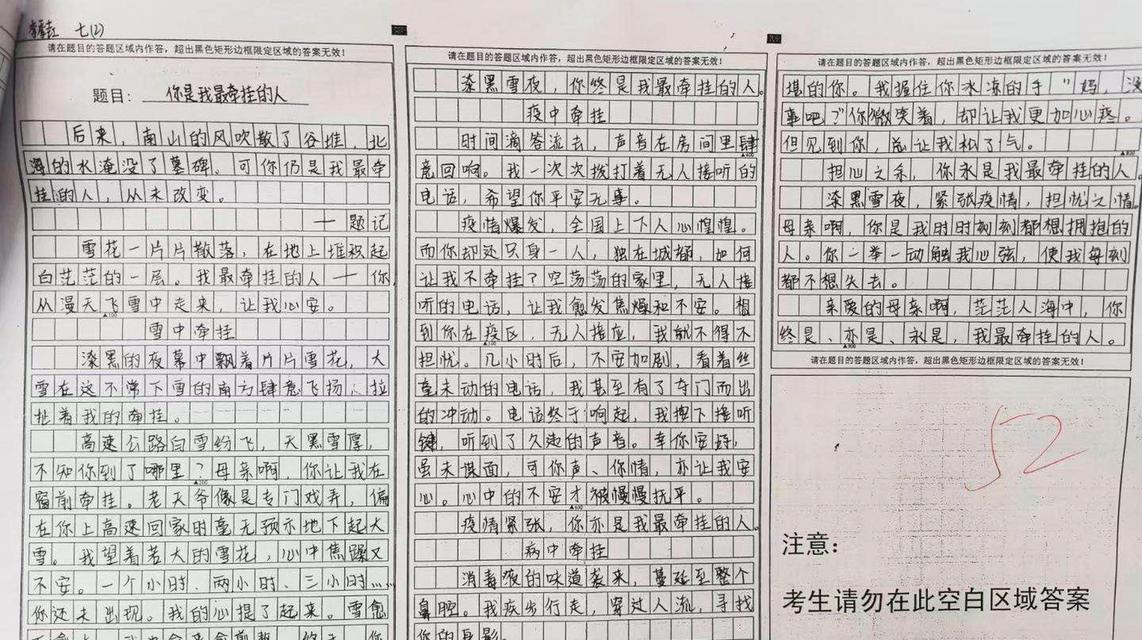 七(2)
请在题目的答题区域内作答，超出黑色矩形边框限定区域的答案无效！
题目：你是我最牵挂的人
后来，南山的风吹散了谷堆，北
海的水淹没了墓碑。可你仍是我最牵
挂的人，从未改变。
——题记
雪花一片片散落，在地上堆积起
白茫茫的一层。我最牵挂的人——你，
从漫天飞雪中走来，让我心安。
雪中牵挂
漆黑的夜幕中飘着片片雪花，大
雪在这不常下雪的南方肆意飞扬，拉
扯着我的牵挂。
高速公路白雪纷飞，天黑雪厚，
不知你到了哪里？母亲啊，你让我在
窗前牵挂。老天爷像是专门戏弄，偏
在你上高速回家时毫无预示地下起大
雪。我望着若大的雪花，心中焦躁又
不安。一个小时、两小时、三小时……
你还未出现。我的心提了起来。雪愈
请在题目的答题区域内作答，超出黑色矩形边框限定区域的答案无效！
漆黑雪夜，你终是我最牵挂的人。
疫中牵挂
时间滴答流去，声音在房间里肆
意回响。我一次次拨打着无人接听的
电话，希望你平安无事。
疫情爆发，全国上下人心惶惶。
而你却还只身一人，独在城都，如何
让我不牵挂？空荡荡的家里，无人接
听的电话，让我愈发焦燥和不安。想
到你在疫区，无人接应，我就不得不
担忧。几小时后，不安加剧，看着丝
毫未动的电话，我甚至有了夺门而出
的冲动。电话终于响起，我按下接听
键，听到了久违的声音。幸你安好，
虽未谋面，可你声、你情，亦让我安
心。心中的不安才被慢慢抚平。
疫情紧张，你亦是我最牵挂的人。
病中牵挂
消毒液的味道袭来，蔓延至整个
鼻腔。我疾步行走，穿过人流，寻找
你的身影。
请在题目的答题区域内作答，超出黑色矩形边框限定区域的答案无效！
堪的你。我握住你冰冻的手"妈，没
事吧？"你微笑着，却让我更加心疼。
但见到你，总让我松了气。
担心之系，你永是我最牵挂的人。
漆黑雪夜，紧张疫情，担忧之情。
母亲啊，你是我时时刻刻都想拥抱的
人。你一举一动触我心弦，使我每刻
都不想失去。
亲爱的母亲啊，茫茫人海中，你
终是、亦是、永是，我最牵挂的人。
请在题目的答题区域内作答，超出黑色矩形边框限定区域的答案无效！
52
注意：
考生请勿在此空白区域答案